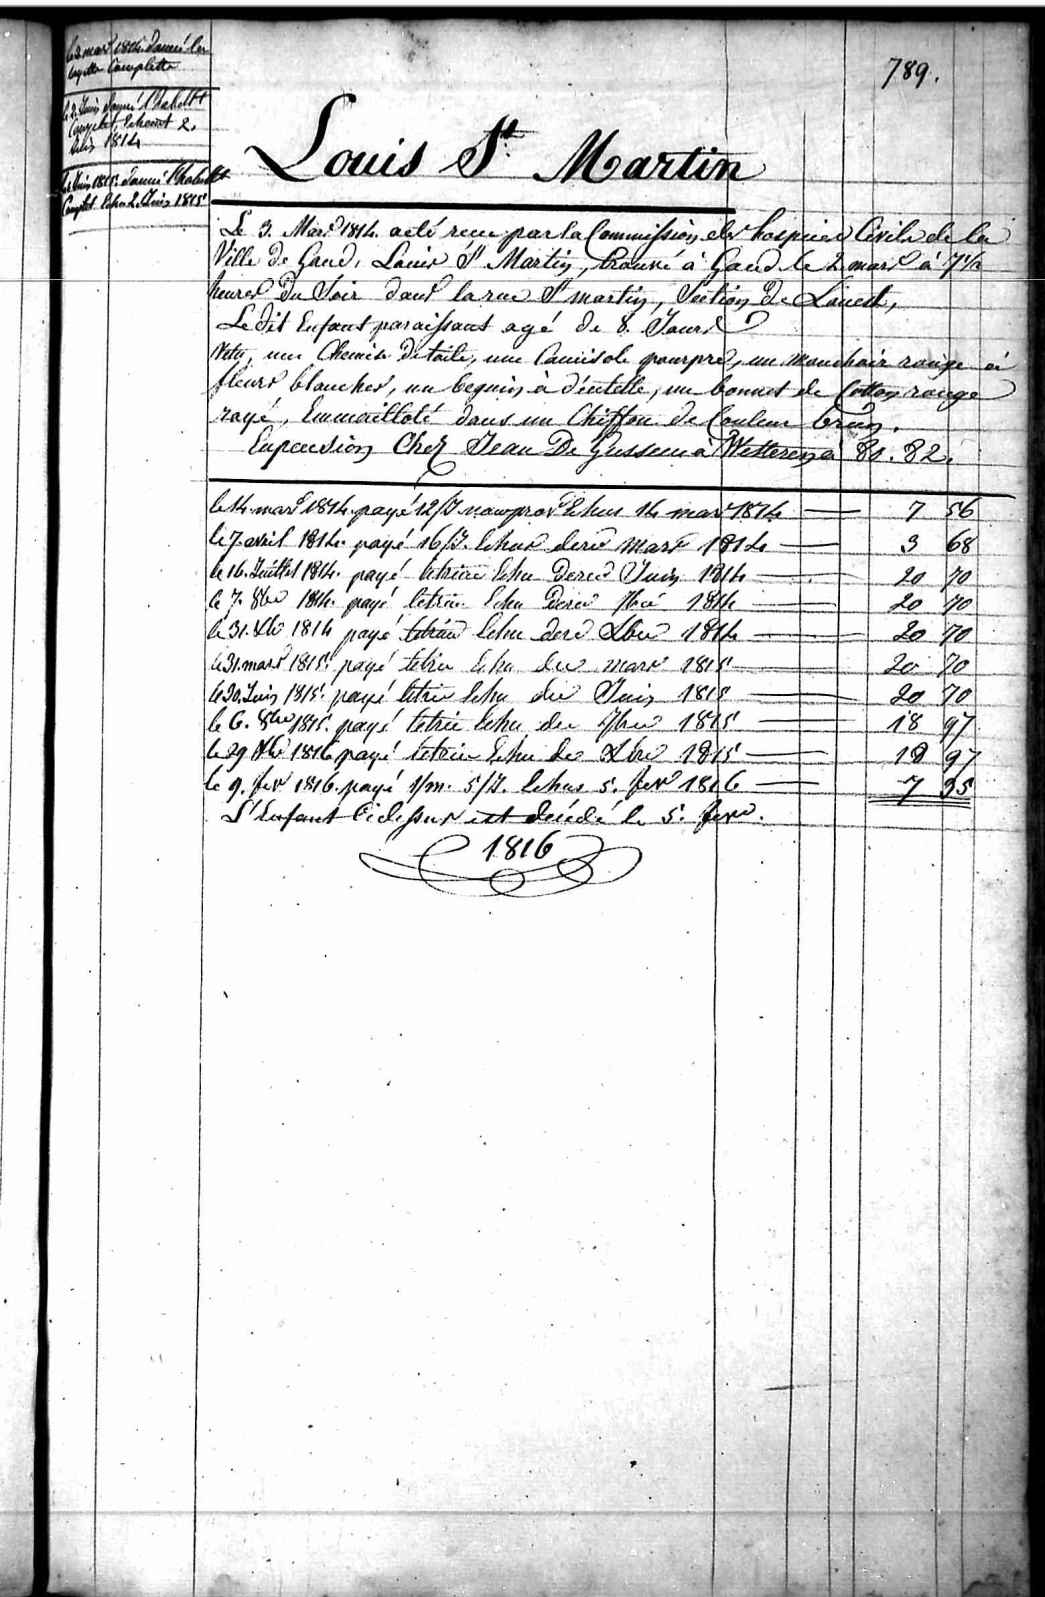 789.
le 2 mars 1814. donné la
layette Complette
le 2. Juin donné l'habillt
Complet, Echeant 2.
1814
le Juin 1815. donné l'habillt
Complet Echu 2. Juin 1815
Louis St. Martin
Le 3. Mars 1814. a eté recu par la Commission des hospices Civils de la
Ville de Gand, Louis St Martin, trouvé à Gand le 2 mars à 7½
heures Du Soir dans la rue St martin, Section De Louest,
Le dit Enfant paraissant agé de 8. Jours
Vetu, une Chemise De toile, une Camisole pourpre, un mouchoir rouge à
fleurs blanches, un beguin à dentelle, un bonnet de Cotton rouge
rayé, Emmailloté dans un Chiffon de Couleur brun.
En pension Chez Jean De Gusseme à Wetteren à 80. 82.
le 14. mars 1814. payé 12/J. Echus 14 mars 1814 7 56
le 7. avril 1814. payé 16/J. Echus dere mars 1814 3 68
le 16. Juillet 1814. payé letrim Echu Dere Juin 1814 20 70
le 7. 8bre 1814. payé letrim Echu Dere 7bre 1814 20 70
le 31. Xbre 1814 payé letrim Echu dere Xbre 1814 20 70
le 31. mars 1815. payé letrim Echu der mars 1815 20 70
le 30. Juin 1815. payé letrim Echu der Juin 1815 20 70
le 6. 8bre 1815. payé letrim Echu der 7bre 1815 18 97
le 29 Xbre 1815 payé letrim Echu der Xbre 1815 18 97
le 9. fevr 1816. payé 1/m. 5/J. Echus 5. fevr 1816 7 35
L'Enfant Cidessus est décédé le 5. fevr.
1816